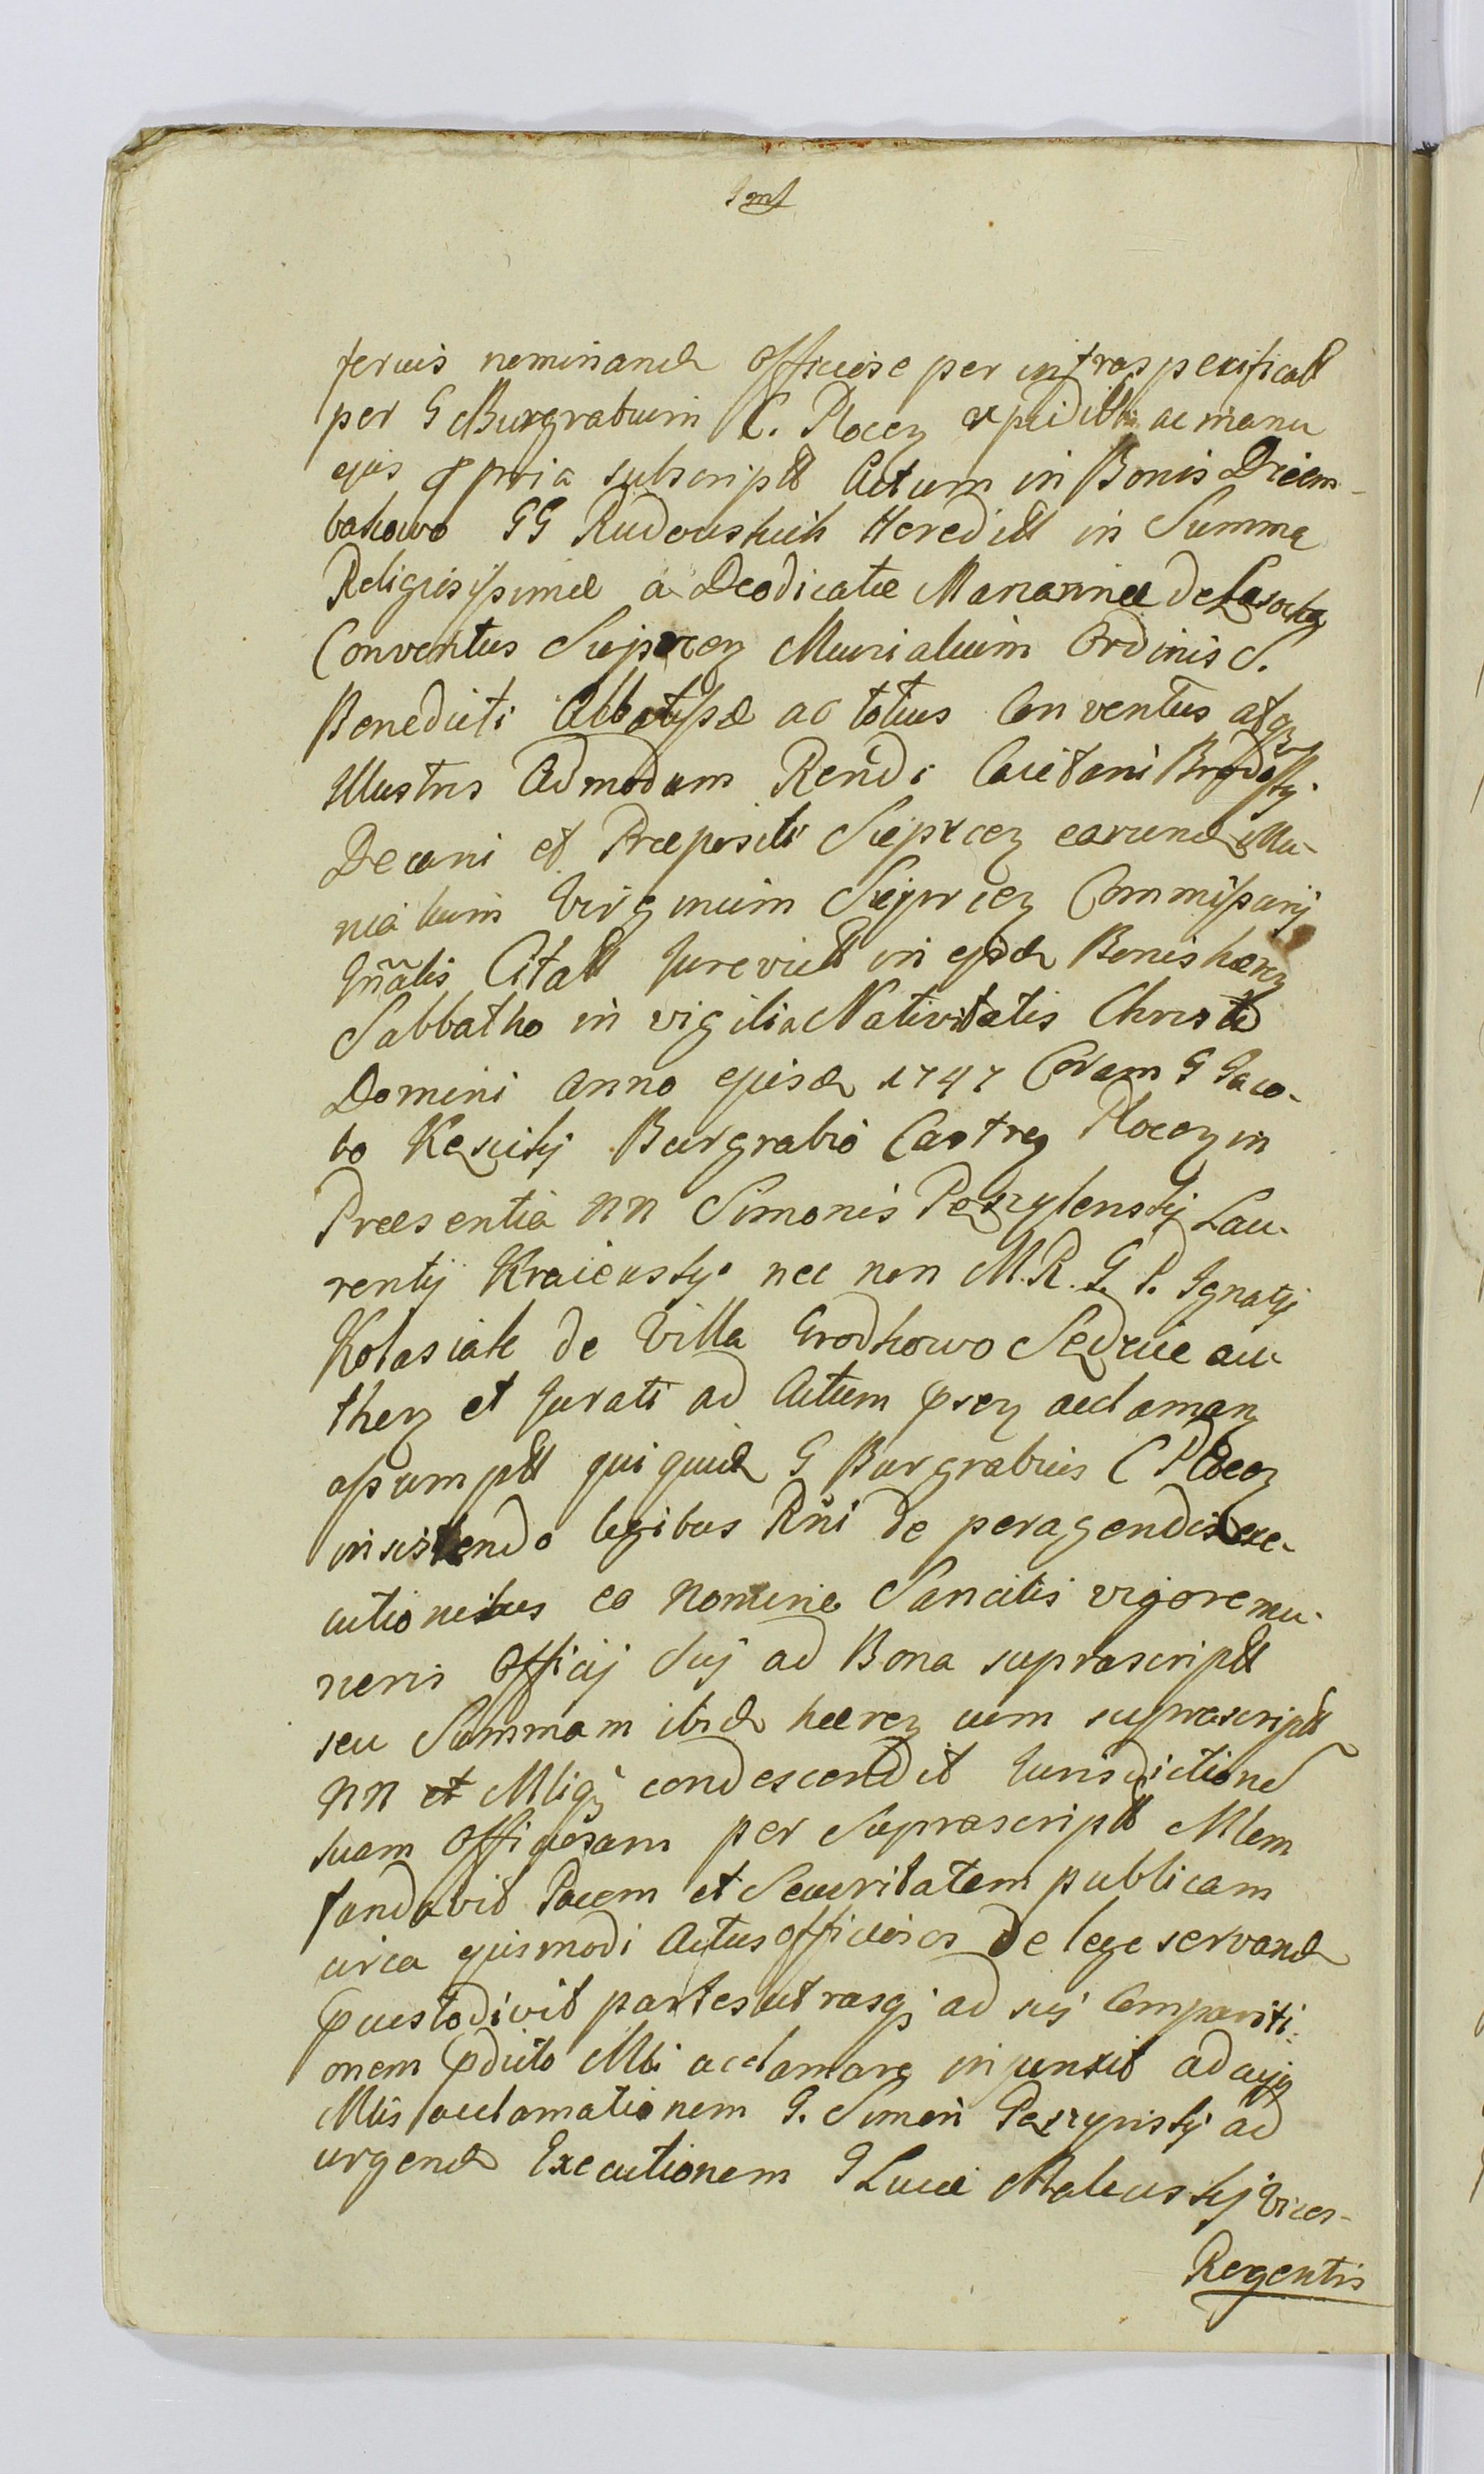 ferius nominand officiose per infraspecificatt
per G Burgrabium C. Plocen expeditt ac manu
ejus ppria subscriptt Actum in Bonis Dziem-
bakowo GG Rudowskich Hereditt in Summa
Religiosissimæ a Deodicatæ Mariannæ de Lasockie
Conventus Sieprcen Monialium Ordinis S.
Benedicti Abbatissæ ac totius Conventus atq
Illustris Admodum Rendi Caietani
Decani et Præpositi Sieprcen earund Mo-
nialium Virginum Sieprcen Commissarij
Gnalis Citatt Jurevictt in ejsd Bonis hæren
Sabbatho in vigilia Nativitatis Christi
Domini Anno ejusd 1747 Coram G Jaco-
bo Kęsicky Burgrabio Castren Plocen in
Præsentia nn Simonis Pęszylenskij Lau-
rentij Kraiewskij nec non M. R. G. P. Ignatij
Kolasiak de Villa Grodkowo Sędzice au-
then et Jurati ad Actum psen acclaman
assumptt qui quid G Burgrabius C Plocen
insistendo legibus Rni de peragendis exe-
cutionibus eo nomine Sancitis vigore mu-
neris Officij Sui ad Bona suprascriptt
seu Summam ibid hæren cum suprascriptt
nn et Mligz condescendit Jurisdictione
suam Officiosam per Suprascriptt Mlem
fundavit Pacem et Securitatem publicam
circa ejusmodi Actus officiosos de lege servand
pcustodivit partes utrasqz ad sui Compariti-
onem pdicto Mli acclamare injunxit ad cujq
Mlis acclamationem G. Simon Pęszynskij ad
urgend Executionem G Lucæ Makowskij Vices-
Regentis